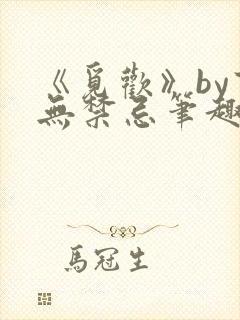 《覓歡》by
無禁忌筆趣
馬冠生